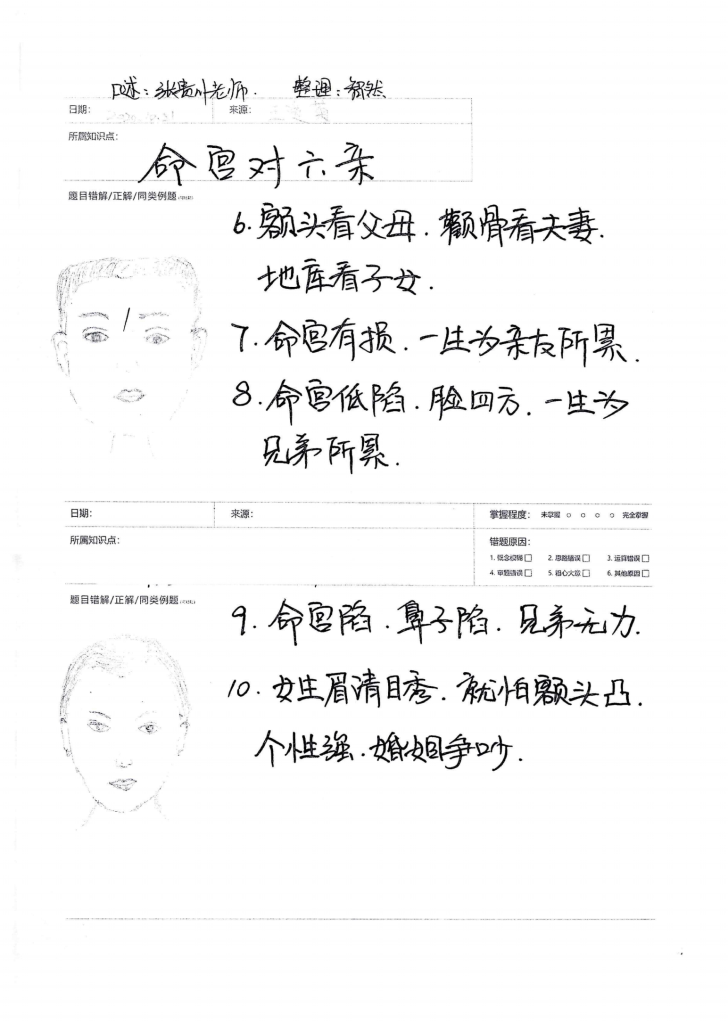 口述:张贵叶老师. 整理:智然
日期: 来源:
所属知识点:
命宫对六亲
题目错解/正解/同类例题
6.额头看父母.颧骨看夫妻.
地库看子女.
7.命宫有损.一生为亲友所累.
8.命宫低陷.脸四方.一生为
兄弟所累.
日期: 来源: 掌握程度: 未掌握 ○ ○ ○ ○ 完全掌握
所属知识点: 错题原因:
1. 概念模糊□ 2. 思路错误□ 3. 运算错误□
4. 审题错误□ 5. 粗心大意□ 6. 其他原因□
题目错解/正解/同类例题
9.命宫陷.鼻子陷.兄弟无力.
10.女生眉清目秀.就怕额头凸.
个性强.婚姻争吵.